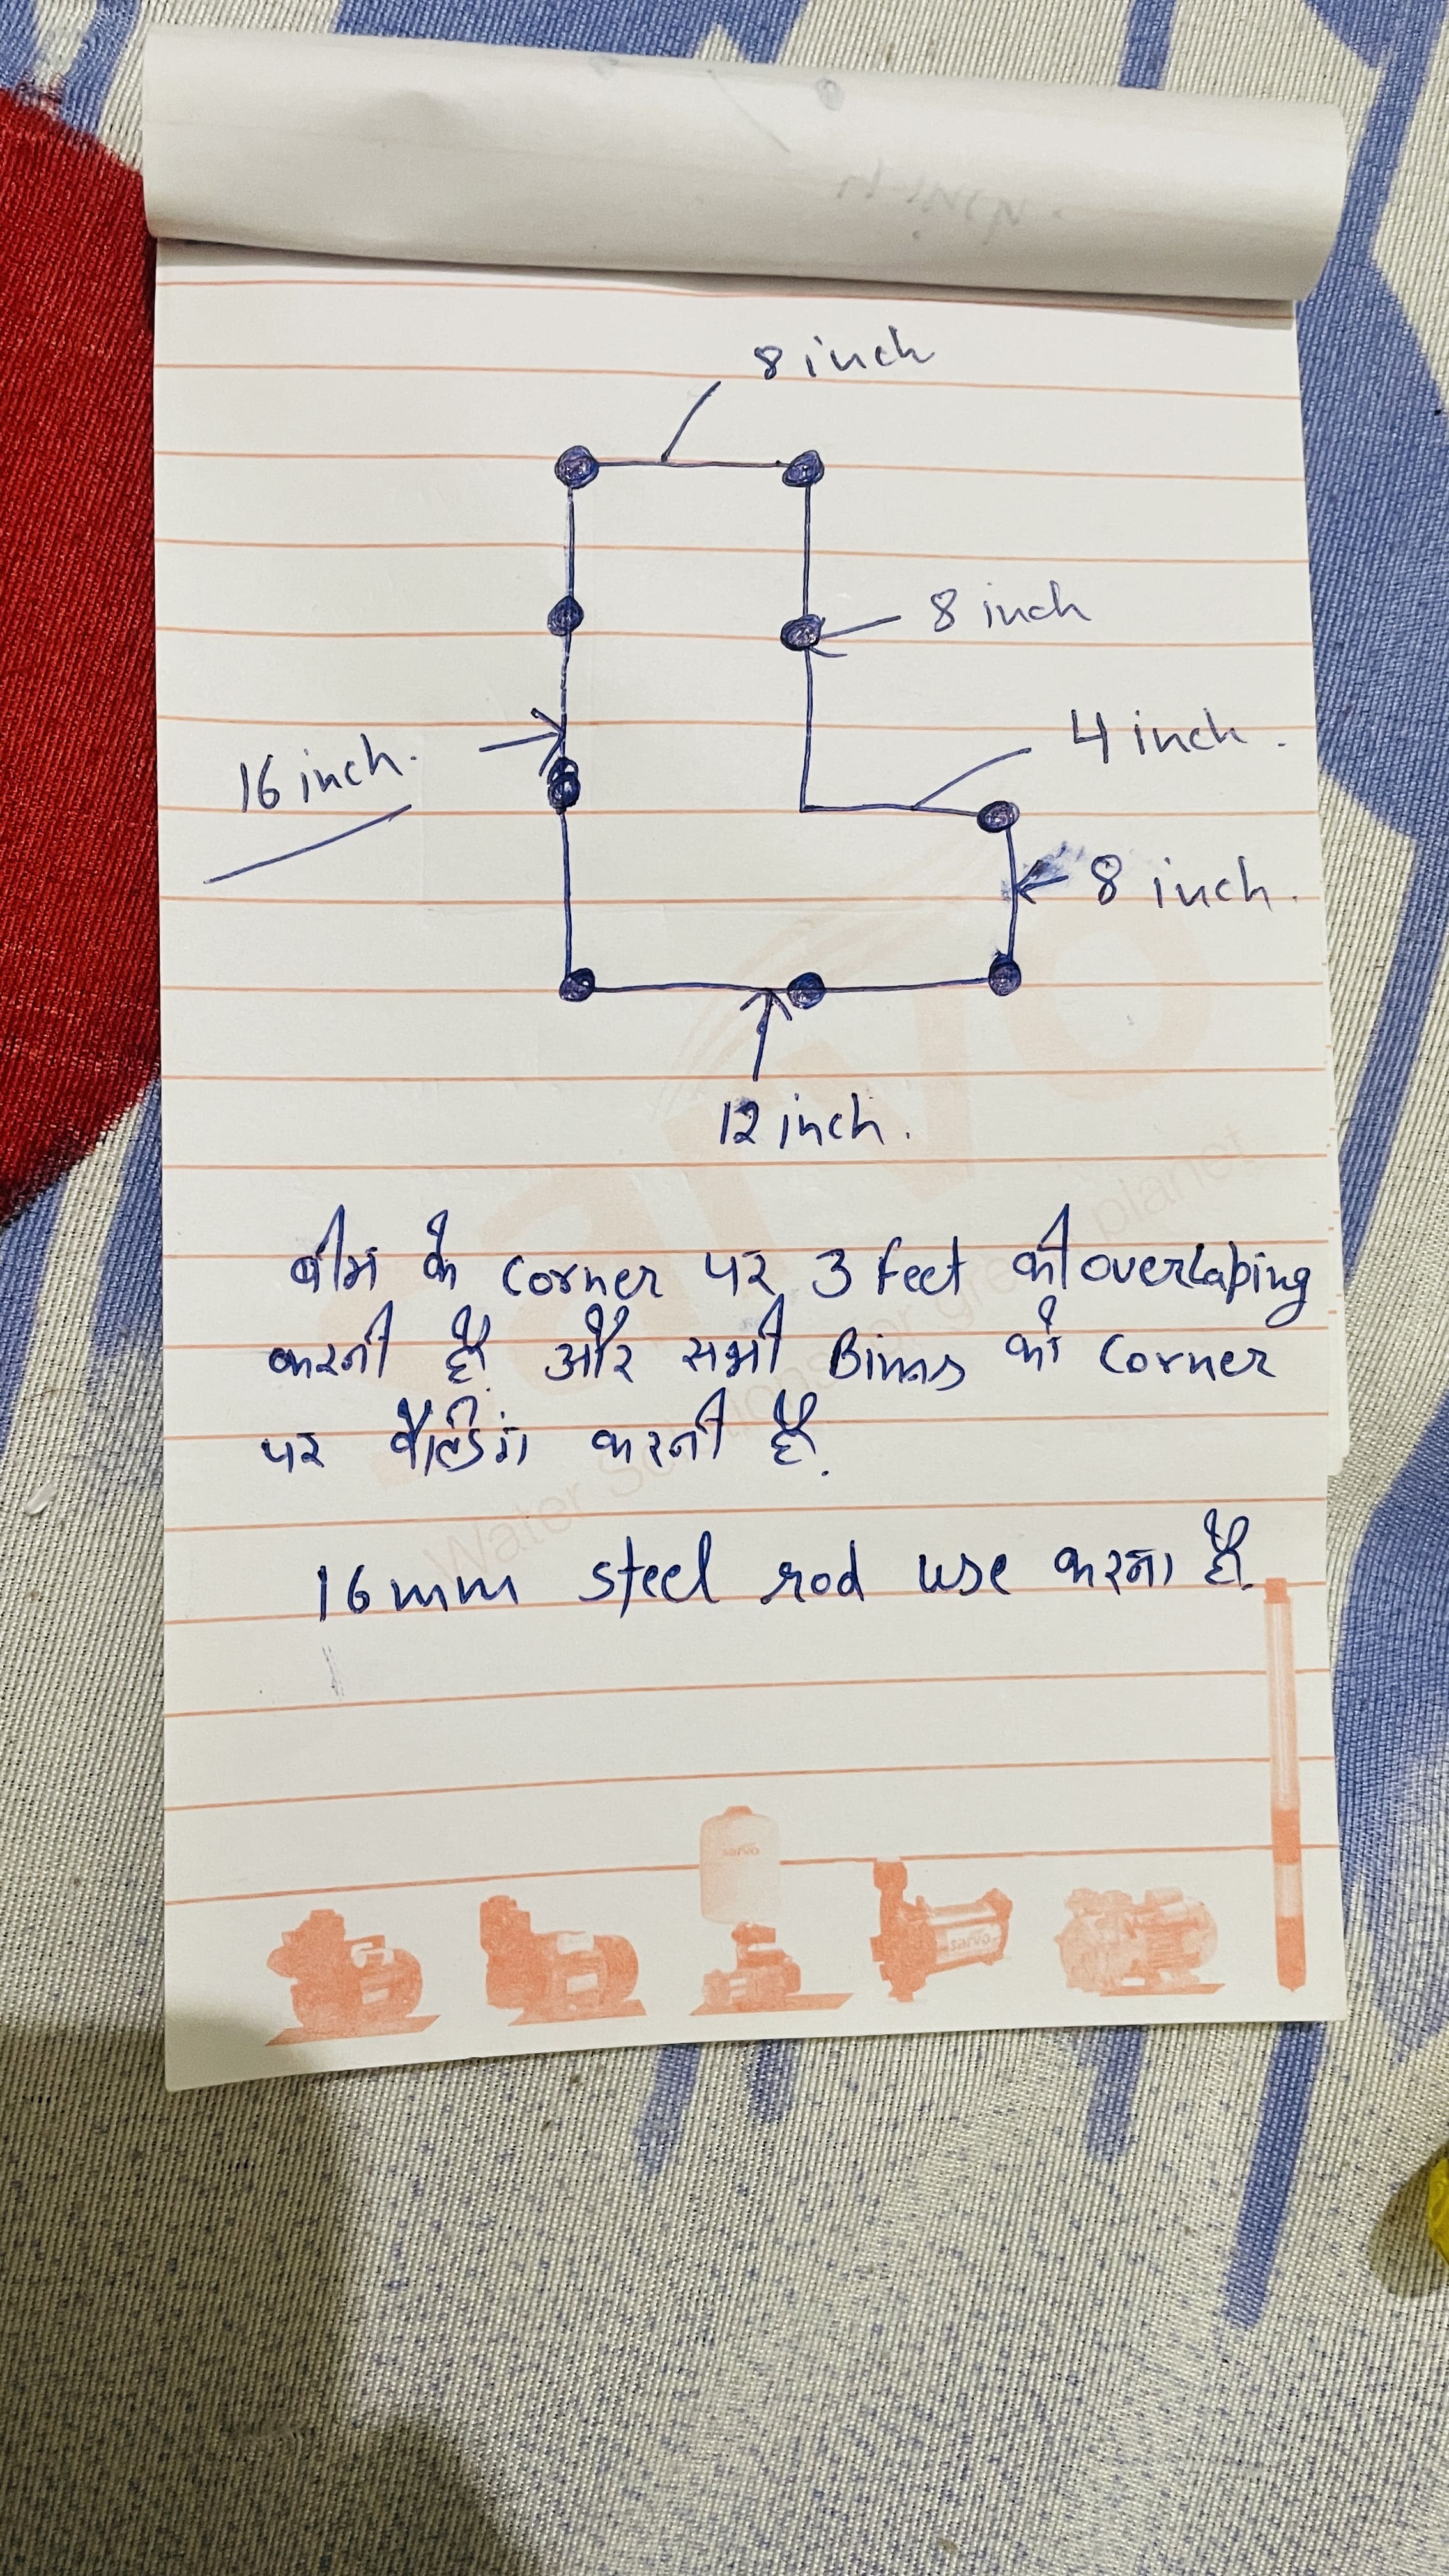 8 inch
8 inch
4 inch.
16 inch.
8 inch.
12 inch.
बीम के corner पर 3 feet की overlaping
करनी है और सभी Bims को corner
पर वैल्डिंग करनी है.
16mm steel rod use करना है.
planet
Water Solutions for gre
servo